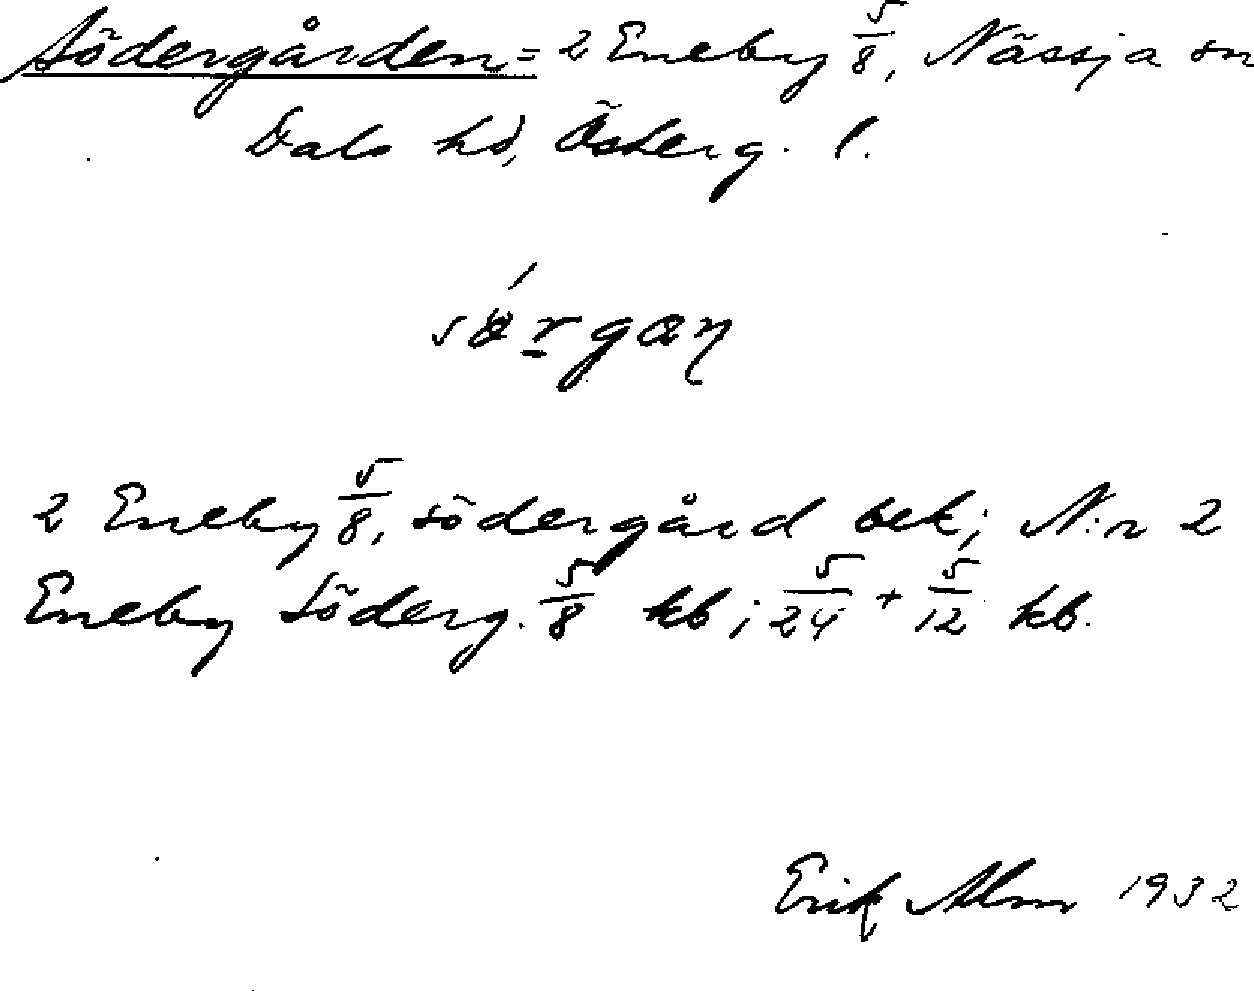 Södergården = 2 Eneby 5/8, Nässja sn
Dals hd, Österg. l.
sǿrgan
2 Eneby 5/8, södergård bek; N:r 2
Eneby Söderg. 5/8 kb; 5/24 + 5/12 kb.
Erik Alm 1932